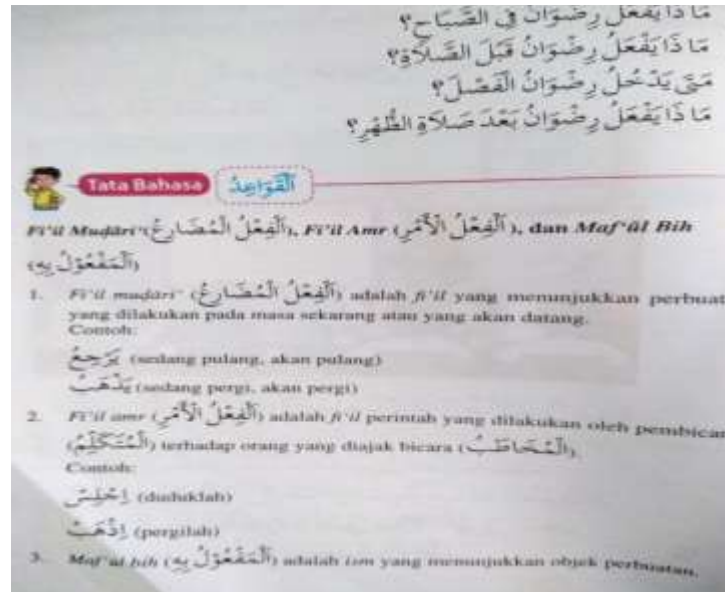 مَا ذَا يَفْعَلُ رِضْوَانُ فِي الصَّبَاحِ؟
مَا ذَا يَفْعَلُ رِضْوَانُ قَبْلَ الصَّلَاةِ؟
مَتَى يَدْخُلُ رِضْوَانُ الْفَصْلَ؟
مَا ذَا يَفْعَلُ رِضْوَانُ بَعْدَ صَلَاةِ الظُّهْرِ؟
Tata Bahasa الْقَوَاعِدُ
Fi'il Muḍāri' (اَلْفِعْلُ الْمُضَارِعُ), Fi'il Amr (اَلْفِعْلُ الْأَمْرِ), dan Maf'ūl Bih
(اَلْمَفْعُوْلُ بِهِ)
1. Fi'il muḍāri' (اَلْفِعْلُ الْمُضَارِعُ) adalah fi'il yang menunjukkan perbuat
yang dilakukan pada masa sekarang atau yang akan datang.
Contoh:
يَرْجِعُ (sedang pulang, akan pulang)
يَذْهَبُ (sedang pergi, akan pergi)
2. Fi'il amr (اَلْفِعْلُ الْأَمْرِ) adalah fi'il perintah yang dilakukan oleh pembicar
(اَلْمُتَكَلِّمُ) terhadap orang yang diajak bicara (اَلْمُخَاطَبُ).
Contoh:
اِجْلِسْ (duduklah)
اِذْهَبْ (pergilah)
3. Maf'ūl bih (اَلْمَفْعُوْلُ بِهِ) adalah ism yang menunjukkan objek perbuatan.